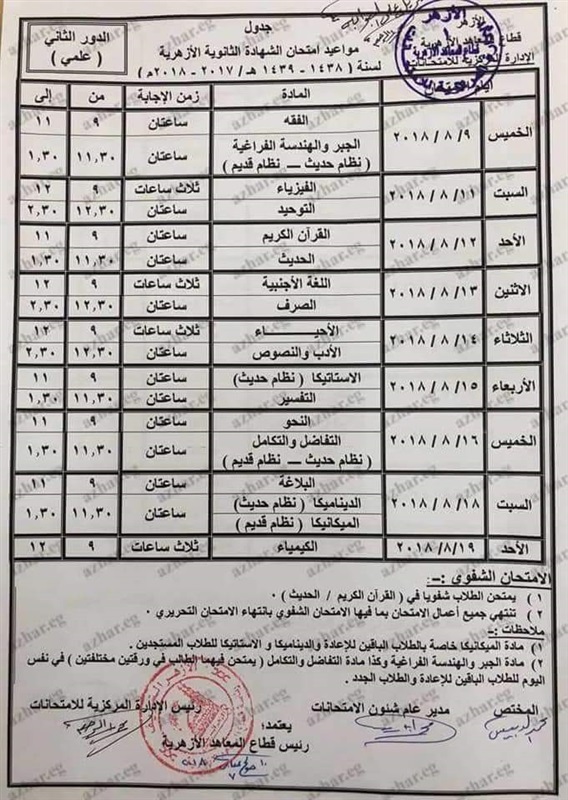 الأزهر
قطاع المعاهد الأزهرية
الإدارة المركزية للامتحانات
جدول
مواعيد امتحان الشهادة الثانوية الأزهرية
لسنة ( ١٤٣٨ - ١٤٣٩ هـ / ٢٠١٧ - ٢٠١٨ م )
الدور الثاني
( علمي )
المادة زمن الإجابة من إلى
الخميس ٢٠١٨ / ٨ / ٩ الفقه ساعتان ٩ ١١
الجبر والهندسة الفراغية ساعتان ١١,٣٠ ١,٣٠
( نظام حديث – نظام قديم )
السبت ٢٠١٨ / ٨ / ١١ الفيزياء ثلاث ساعات ٩ ١٢
التوحيد ساعتان ١٢,٣٠ ٢,٣٠
الأحد ٢٠١٨ / ٨ / ١٢ القرآن الكريم ساعتان ٩ ١١
الحديث ساعتان ١١,٣٠ ١,٣٠
الاثنين ٢٠١٨ / ٨ / ١٣ اللغة الأجنبية ثلاث ساعات ٩ ١٢
الصرف ساعتان ١٢,٣٠ ٢,٣٠
الثلاثاء ٢٠١٨ / ٨ / ١٤ الأحياء ثلاث ساعات ٩ ١٢
الأدب والنصوص ساعتان ١٢,٣٠ ٢,٣٠
الأربعاء ٢٠١٨ / ٨ / ١٥ الاستاتيكا ( نظام حديث) ساعتان ٩ ١١
التفسير ساعتان ١١,٣٠ ١,٣٠
الخميس ٢٠١٨ / ٨ / ١٦ النحو ساعتان ٩ ١١
التفاضل والتكامل ساعتان ١١,٣٠ ١,٣٠
( نظام حديث – نظام قديم )
السبت ٢٠١٨ / ٨ / ١٨ البلاغة ساعتان ٩ ١١
الديناميكا ( نظام حديث) ساعتان ١١,٣٠ ١,٣٠
الميكانيكا ( نظام قديم)
الأحد ٢٠١٨/٨/١٩ الكيمياء ثلاث ساعات ٩ ١٢
الامتحان الشفوي :-
١ ) يمتحن الطلاب شفويا في ( القرآن الكريم / الحديث ) ٠
٢ ) تنتهي جميع أعمال الامتحان بما فيها الامتحان الشفوي بانتهاء الامتحان التحريري ٠
ملاحظات :-
١ ) مادة الميكانيكا خاصة بالطلاب الباقين للإعادة والديناميكا و الاستاتيكا للطلاب المستجدين .
٢ ) مادة الجبر والهندسة الفراغية وكذا مادة التفاضل والتكامل ( يمتحن فيهما الطالب في ورقتين مختلفتين ) في نفس
اليوم للطلاب الباقين للإعادة والطلاب الجدد .
المختص مدير عام شئون الامتحانات رئيس الإدارة المركزية للامتحانات
يعتمد،
رئيس قطاع المعاهد الأزهرية
azhar.eg